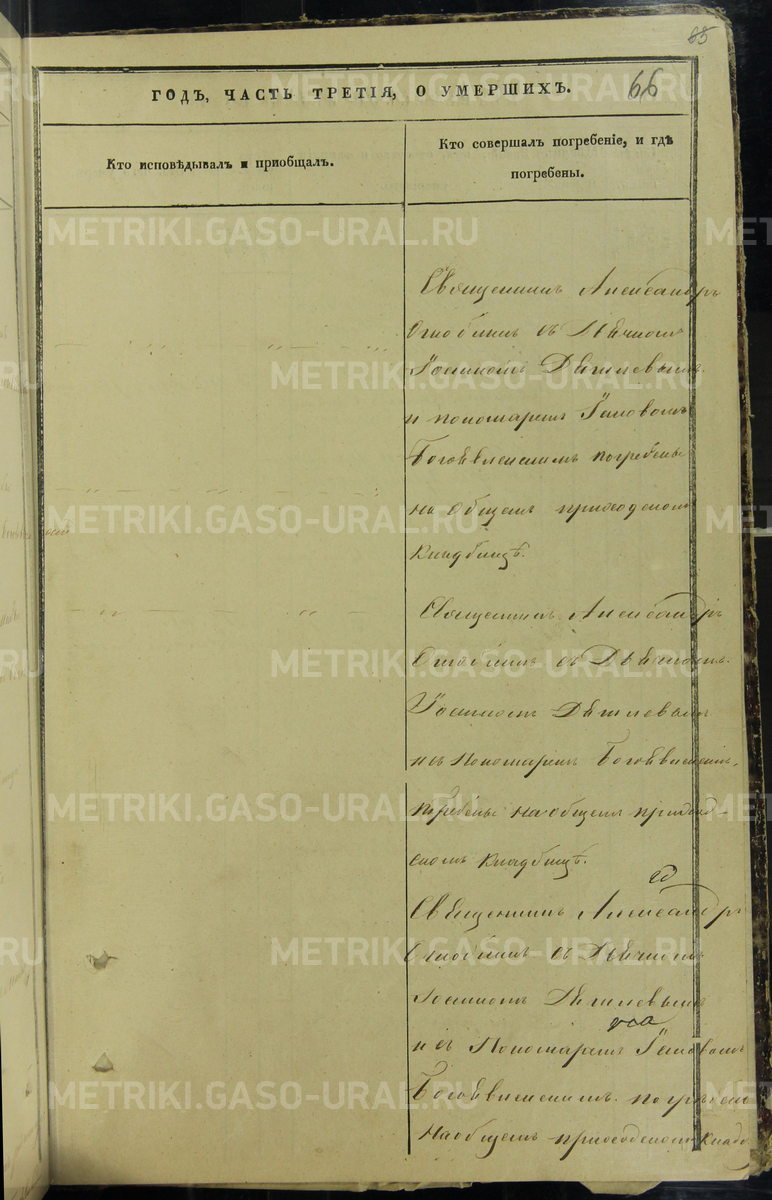 85
66
ГОДЪ, ЧАСТЬ ТРЕТІЯ, О УМЕРШИХЪ.
Кто исповѣдывалъ и пріобщалъ.
Кто совершалъ погребеніе, и гдѣ
погребены.
METRIKI.GASO-URAL.RU
Священникъ Александръ
съ Дьячкомъ
Іоанномъ
и пономаремъ Іаковомъ
Богоявленскимъ погребены
на общемъ приходскомъ
Кладбищѣ.
Священникъ Александръ
съ Дьячкомъ
Іоанномъ
и съ Пономаремъ Богоявленскимъ
погребены на общемъ приход-
скомъ кладбищѣ.
Священникъ Александръ
съ Дьячкомъ
Іоанномъ
и съ Пономаремъ Іаковомъ
Богоявленскимъ
На общемъ приходскомъ кладб